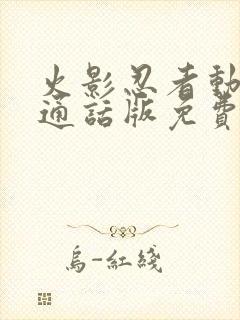 火影忍者動
通話版免費
烏-紅綫